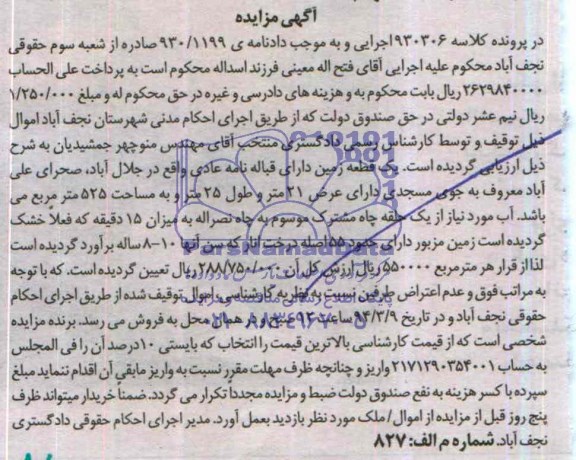 آگهی مزایده
در پرونده کلاسه ۹۳۰۳۰۶ اجرایی و به موجب دادنامه ی ۹۳۰/۱۱۹۹ صادره از شعبه سوم حقوقی
نجف آباد محکوم علیه اجرایی آقای فتح اله معینی فرزند اسداله محکوم است به پرداخت علی الحساب
۲۶۲۹۸۴۰۰۰۰ ریال بابت محکوم به و هزینه های دادرسی و غیره در حق محکوم له و مبلغ ۱/۲۵۰/۰۰۰
ریال نیم عشر دولتی در حق صندوق دولت که از طریق اجرای احکام مدنی شهرستان نجف آباد اموال
ذیل توقیف و توسط کارشناس رسمی دادگستری منتخب آقای مهندس منوچهر جمشیدیان به شرح
ذیل ارزیابی گردیده است. یک قطعه زمین دارای قباله نامه عادی واقع در جلال آباد، صحرای علی
آباد معروف به جوی مسجدی دارای عرض ۲۱ متر و طول ۲۵ متر و به مساحت ۵۲۵ متر مربع می
باشد. آب مورد نیاز از یک حلقه چاه مشترک موسوم به چاه نصراله به میزان ۱۵ دقیقه که فعلاً خشک
گردیده است زمین مزبور دارای حدود ۵۵ اصله درخت انار که سن آنها ۱۰-۸ ساله برآورد گردیده است
لذا از قرار هر مترمربع ۵۵۰۰۰۰ ریال ارزش کل آن ۲۸۸/۷۵۰/۰۰۰ ریال تعیین گردیده است. که با توجه
به مراتب فوق و عدم اعتراض طرفین نسبت به نظریه کارشناسی، اموال توقیف شده از طریق اجرای احکام
حقوقی نجف آباد و در تاریخ ۹۴/۳/۹ ساعت صبح و در همان محل به فروش می رسد. برنده مزایده
شخصی است که از قیمت کارشناسی بالاترین قیمت را انتخاب که بایستی ۱۰درصد آن را فی المجلس
به حساب ۲۱۷۱۲۹۰۳۵۴۰۰۱ واریز و چنانچه ظرف مهلت مقرر نسبت به واریز مابقی آن اقدام ننماید مبلغ
سپرده با کسر هزینه به نفع صندوق دولت ضبط و مزایده مجدداً تکرار می گردد. ضمناً خریدار میتواند ظرف
پنج روز قبل از مزایده از اموال/ملک مورد نظر بازدید بعمل آورد. مدیر اجرای احکام حقوقی دادگستری
نجف آباد. شماره م الف: ۸۲۷
ParsNamadData